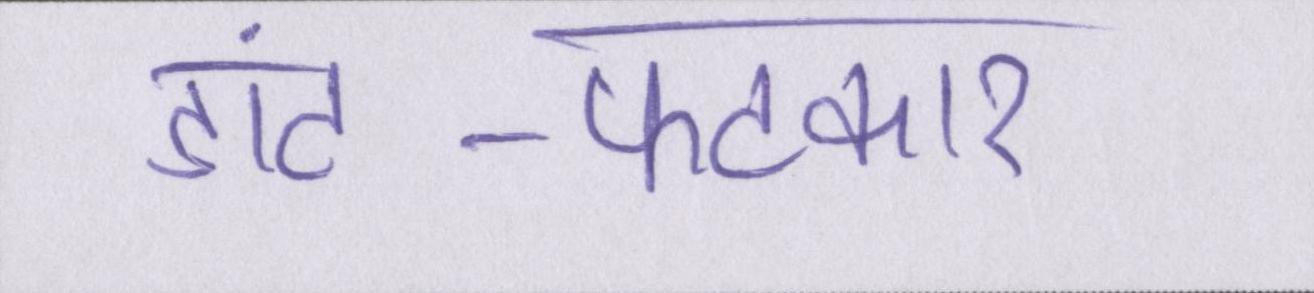 डांट -फटकार